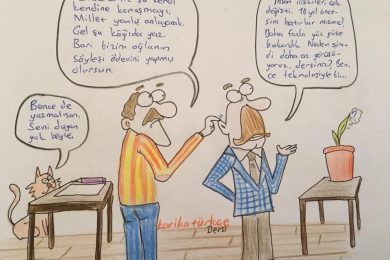 kendine konuşmayı,
Millet yanlış anlayacak.
Gel şu kâğıda yaz.
Bari bizim oğlanın
Söyleşi ödevini yapmış
olursun.
İnsan ilişkileri çok
değişti. 10 yıl önce-
sini hatırlar mısınız?
Daha fazla yüz yüze
bakardık. Neden şim-
di daha az görüşü-
yoruz, dersiniz? Ben-
ce teknolojiyle il...
Bence de
yazmalısın.
Seni duyan
yok böyle.
karikatürkçe
Dersi